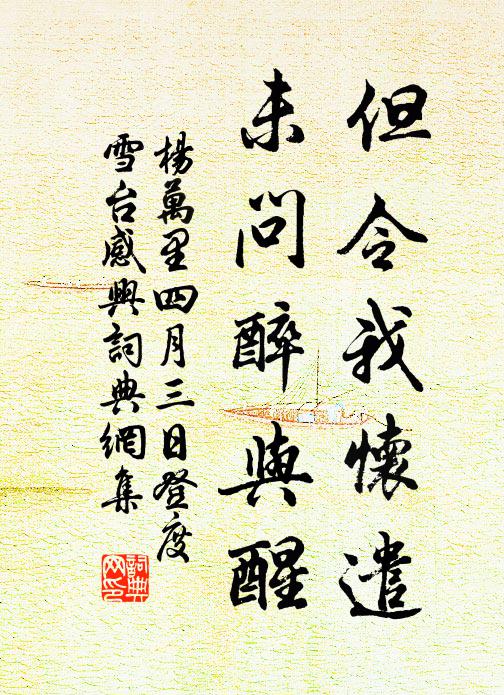 但令我懷遣
未問醉與醒
楊萬里四月三日登度
雪台感興詞典網集
詞典网印